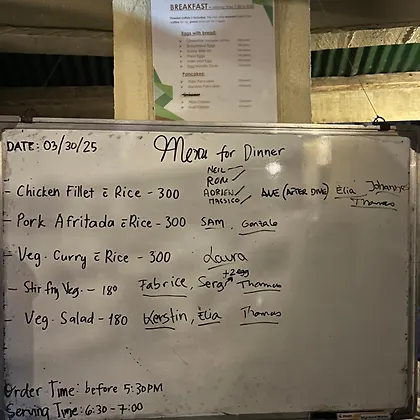 BREAKFAST
Eggs with bread:
Pancakes:
DATE: 03/30/25
Menu for Dinner
NEIL
RON
- Chicken Fillet c̄ Rice - 300 ADRIEN AVE (AFTER DIVE) Elia Johannye
MASSICO Thomas
- Pork Afritada c̄ Rice - 300 SAM, Gonzalo
- Veg. Curry c̄ Rice - 300 Laura
+2 egg
- Stir fry Veg. - 180 Fabrice, Serg Thomas
- Veg. Salad - 180 Kerstin, Elia Thomas
Order Time: before 5:30PM
Serving Time: 6:30 - 7:00